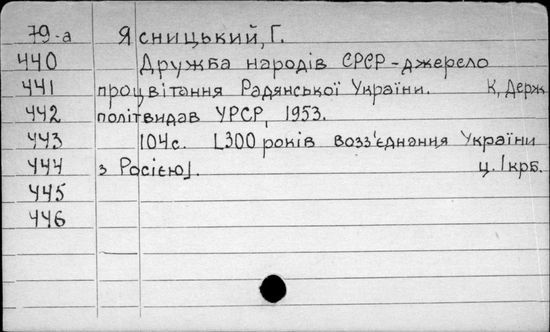 79-а Ясницький, Г.
440 Дружба народів СРСР - джерело
441 процвітання Радянської України. К, Держ
442 політвидав УРСР, 1953.
443 104 с. [300 років возз'єднання України
444 з Росією]. ц. 1 крб.
445
446